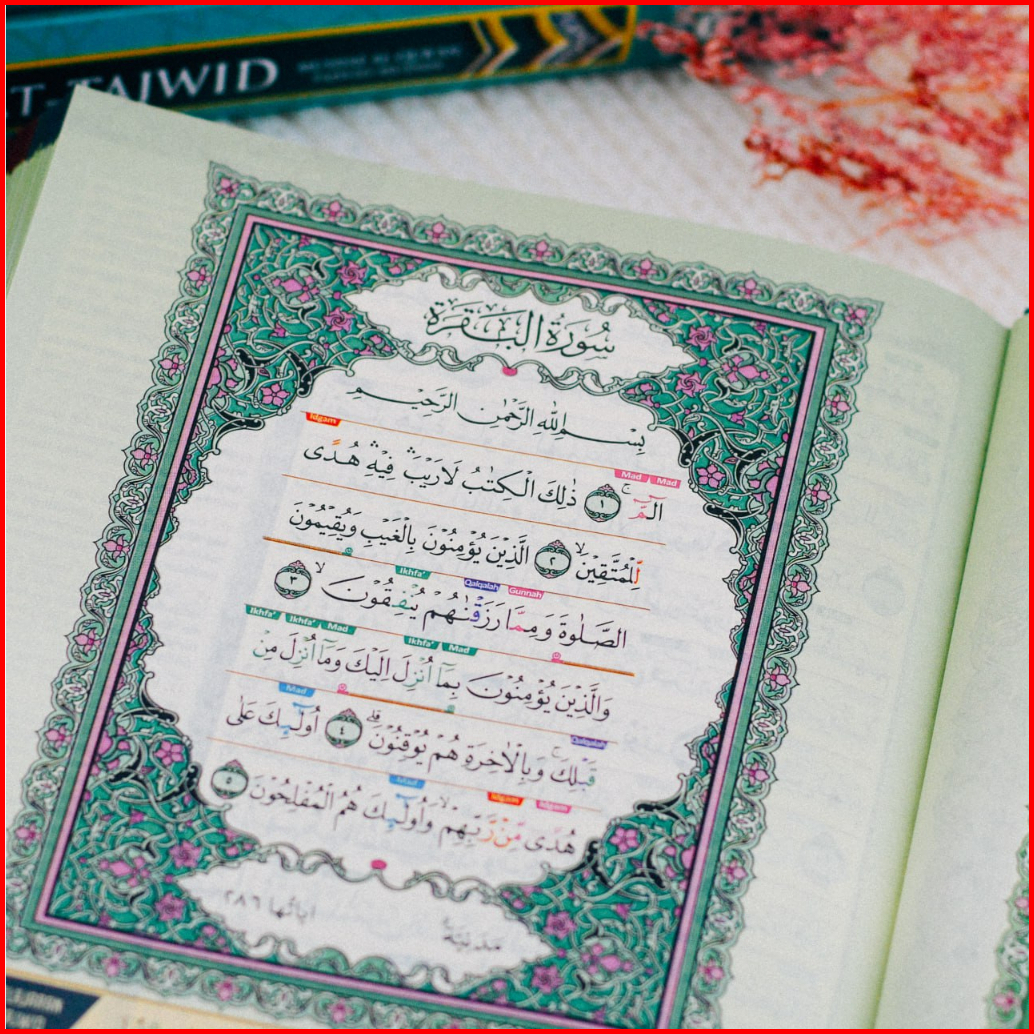 T-TAJWID
سُورَةُ الْبَقَرَةِ
بِسْمِ اللّٰهِ الرَّحْمٰنِ الرَّحِيْمِ
Idgam
Mad Mad
الۤمّۤ ۚ ١ ذٰلِكَ الْكِتٰبُ لَا رَيْبَ ۛ فِيْهِ ۛ هُدًى
لِّلْمُتَّقِيْنَ ۙ ٢ الَّذِيْنَ يُؤْمِنُوْنَ بِالْغَيْبِ وَيُقِيْمُوْنَ
Ikhfa' Qalqalah Gunnah
الصَّلٰوةَ وَمِمَّا رَزَقْنٰهُمْ يُنْفِقُوْنَ ۙ ٣
Ikhfa' Ikhfa' Mad Ikhfa' Mad
وَالَّذِيْنَ يُؤْمِنُوْنَ بِمَآ اُنْزِلَ اِلَيْكَ وَمَآ اُنْزِلَ مِنْ
Mad Qalqalah
قَبْلِكَ ۚ وَبِالْاٰخِرَةِ هُمْ يُوْقِنُوْنَ ۗ ٤ اُولٰۤىِٕكَ عَلٰى
Mad Idgam Idgam
هُدًى مِّنْ رَّبِّهِمْ ۙ وَاُولٰۤىِٕكَ هُمُ الْمُفْلِحُوْنَ ٥
مَدَنِيَّةٌ اٰيَاتُهَا ٢٨٦